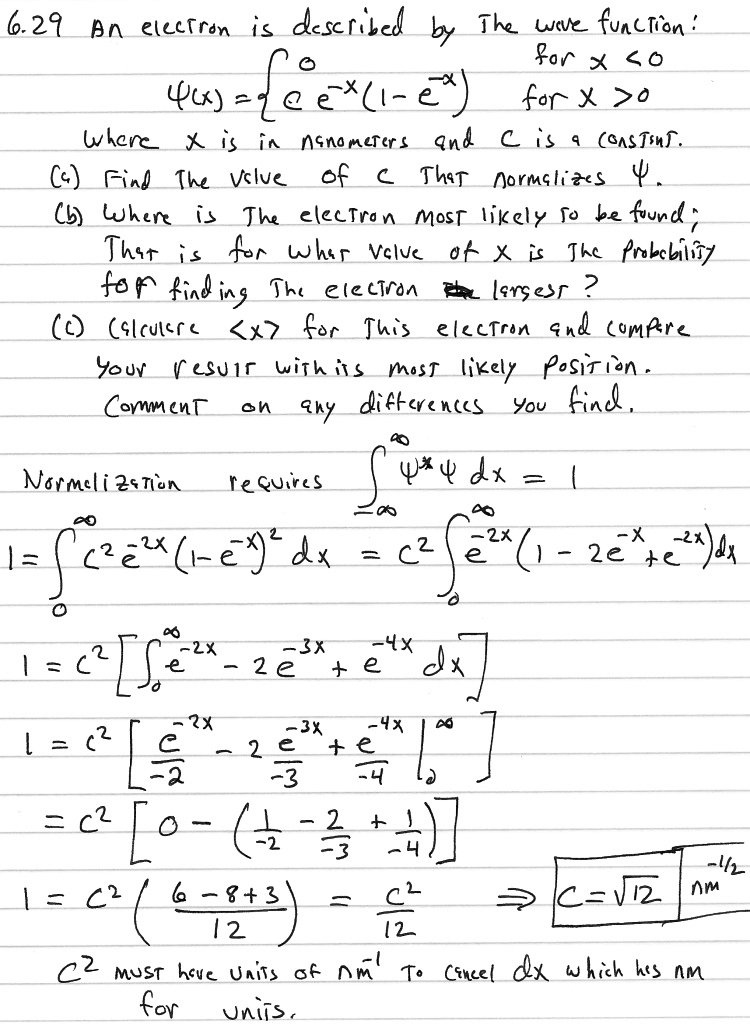 6.29 An electron is described by The wave function:
ψ(x) = { 0 for x < 0
C e^-x (1 - e^-x) for x > 0
where x is in nanometers and C is a constant.
(a) Find The value of c That normalizes ψ.
(b) Where is The electron most likely to be found;
That is for what value of x is The probability
for finding The electron largest?
(c) Calculate <x> for This electron and compare
your result with its most likely position.
Comment on any differences you find.
Normalization requires ∫_-∞^∞ ψ*ψ dx = 1
1 = ∫_0^∞ c² e^-2x (1-e^-x)² dx = c² ∫_0^∞ e^-2x (1 - 2e^-x + e^-2x) dx
1 = c² [ ∫_0^∞ e^-2x - 2e^-3x + e^-4x dx ]
1 = c² [ e^-2x/-2 - 2 e^-3x/-3 + e^-4x/-4 |_0^∞ ]
= c² [ 0 - ( 1/-2 - 2/-3 + 1/-4 ) ]
1 = c² ( 6 - 8 + 3 / 12 ) = c²/12 ⇒ C = √12 nm^-1/2
c² must have units of nm^-1 To cancel dx which has nm
for units.